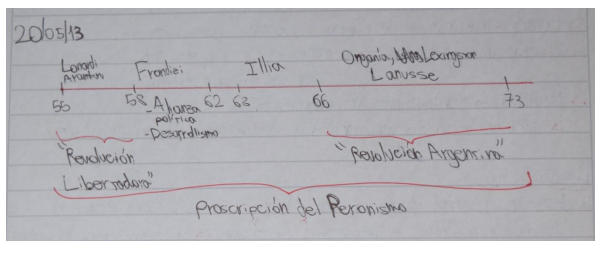 20/05/13
Lonardi
Aramburu
Frondizi
Illia
Onganía, Levingston
Lanusse
55
58
62
63
66
73
-Alianza
política
-Desarrollismo
"Revolución
Libertadora"
"Revolución Argentina"
Proscripción del Peronismo